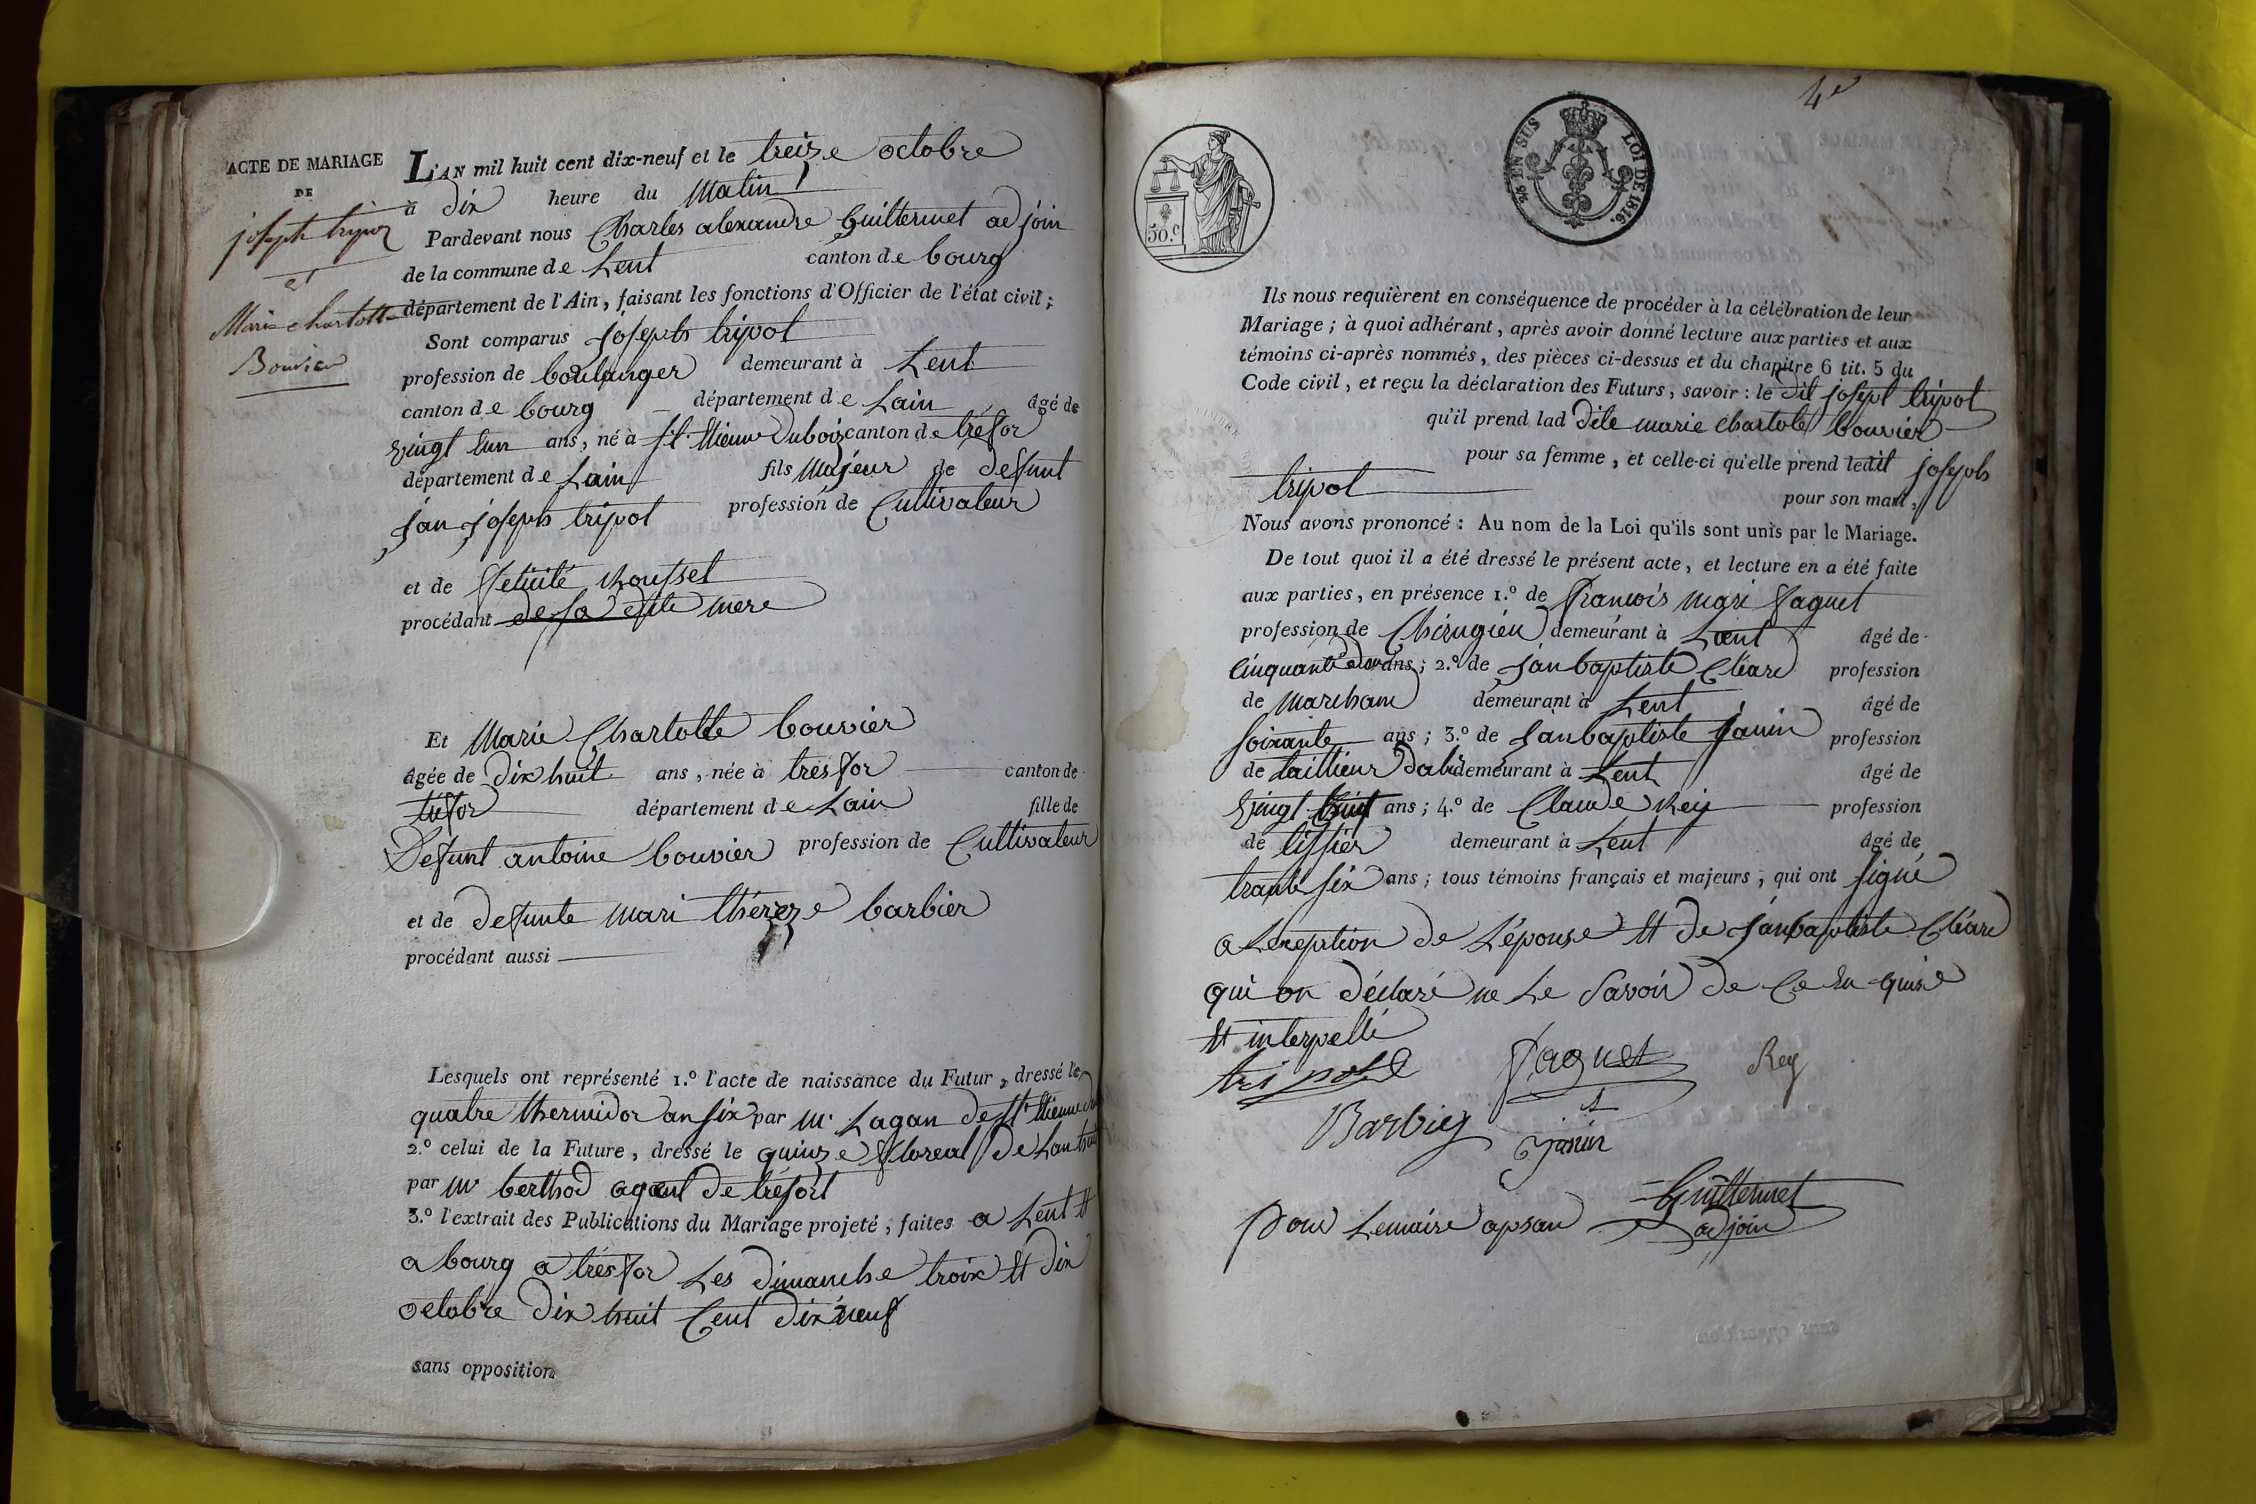 ACTE DE MARIAGE
DE
joseph tripoz
et
Marie chartotte
Bouvier
L'AN mil huit cent dix-neuf et le treize octobre
à dix heure du Matin
Pardevant nous Charles alexandre Guillermet adjoin
de la commune de Lent canton de bourg
département de l'Ain, faisant les fonctions d'Officier de l'état civil;
Sont comparus joseph tripot
profession de boulanger demeurant à Lent
canton de bourg département de Lain âgé de
vingt un ans, né à st. Etienne Dubois canton de tréfor
département de Lain fils Majeur de defunt
jan joseph tripot profession de Cultivateur
et de Felicité Rousset
procédant de sa dite mere
Et Marie Chartotte bouvier
âgée de dix huit ans, née à tresfor canton de
tréfor département de Lain fille de
Defunt antoine bouvier profession de Cultivateur
et de defunte mari théreze barbier
procédant aussi
Lesquels ont représenté 1.º l'acte de naissance du Futur, dressé le
quatre thermidor an six par Mr Lagan de St Etienne du
2.º celui de la Future, dressé le quinze floreal de Lan huit
par Mr berthod agant de tréfort
3.º l'extrait des Publications du Mariage projeté, faites a Lent et
a bourg a trésfor Les dimanche troix et dix
octobre dix huit Cent dix neuf
sans opposition
4e
50.c
25 EN SUS LOI DE 1816.
Ils nous requièrent en conséquence de procéder à la célébration de leur
Mariage; à quoi adhérant, après avoir donné lecture aux parties et aux
témoins ci-après nommés, des pièces ci-dessus et du chapitre 6 tit. 5 du
Code civil, et reçu la déclaration des Futurs, savoir: le dit joseph tripot
qu'il prend lad dite marie chartote bouvier
pour sa femme, et celle-ci qu'elle prend ledit joseph
tripot pour son mari,
Nous avons prononcé: Au nom de la Loi qu'ils sont unis par le Mariage.
De tout quoi il a été dressé le présent acte, et lecture en a été faite
aux parties, en présence 1.º de Francois mari Faguet
profession de Chérugien demeurant à Lent âgé de
cinquante deux ans; 2.º de jan baptiste Cléard profession
de marchand demeurant à Lent âgé de
soixante ans; 3.º de jan baptiste janin profession
de taillieur dabi demeurant à Lent âgé de
vingt huit ans; 4.º de Claude Rey profession
de tissier demeurant à Lent âgé de
trante six ans; tous témoins français et majeurs, qui ont signé
a Lexeption de L'épouse et de janbaptiste Cléard
qui on déclaré ne Le Savoir de Ce en quise
et interpellé
tripot Faguet Rey
Barbiey janin
Guillermet
pour Lemaire apsan adjoin